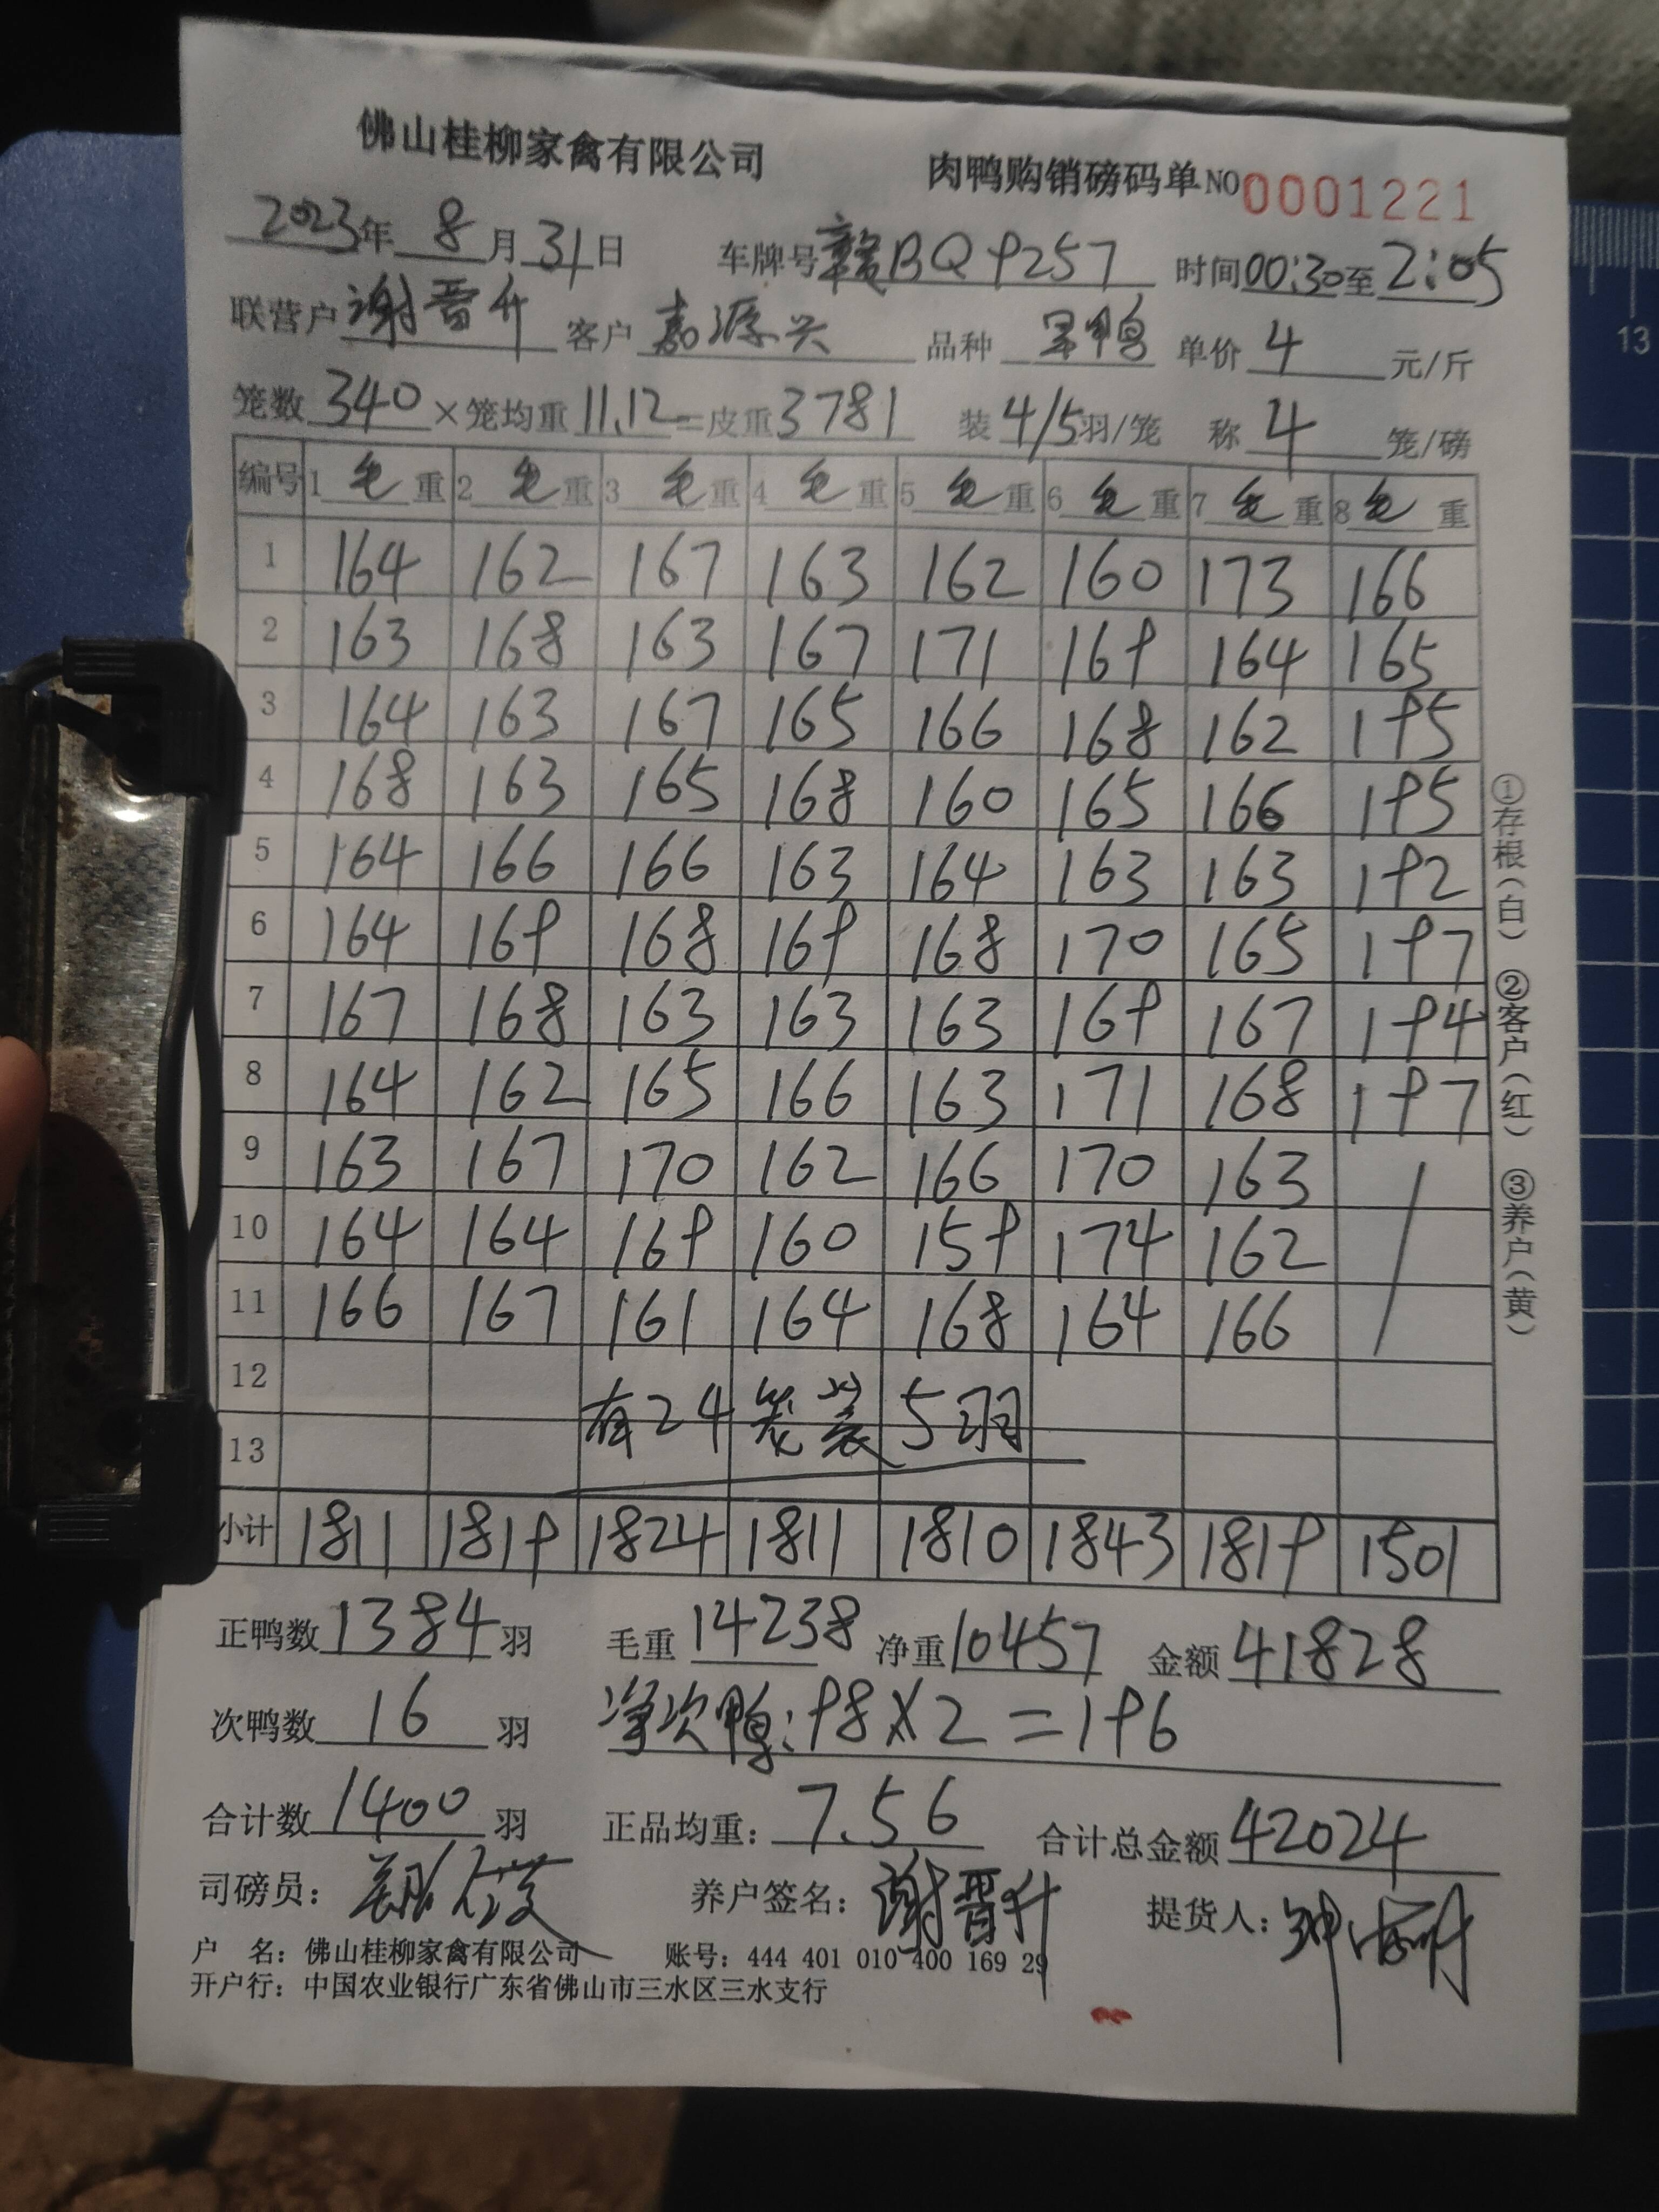 佛山桂柳家禽有限公司 肉鸭购销磅码单 NO 0001221
2023年 8 月 31 日 车牌号 赣BQ9257 时间 00:30 至 2:05
联营户 谢晋升 客户 嘉源兴 品种 鸭 单价 4 元/斤
笼数 340 ×笼均重 11.12 =皮重 3781 装 4/5 羽/笼 称 4 笼/磅
编号 1 毛 重 2 毛 重 3 毛 重 4 毛 重 5 毛 重 6 毛 重 7 毛 重 8 毛 重
1 164 162 167 163 162 160 173 166
2 163 168 163 167 171 169 164 165
3 164 163 167 165 166 168 162 195
4 168 163 165 168 160 165 166 195
5 164 166 166 163 164 163 163 192
6 164 169 168 169 168 170 165 197
7 167 168 163 163 163 169 167 194
8 164 162 165 166 163 171 168 197
9 163 167 170 162 166 170 163
10 164 164 169 160 159 174 162
11 166 167 161 164 168 164 166
12
有24笼装5羽
13
小计 1811 1819 1824 1811 1810 1843 1819 1501
正鸭数 1384 羽 毛重 14238 净重 10457 金额 41828
次鸭数 16 羽 净次鸭:98×2=196
合计数 1400 羽 正品均重: 7.56 合计总金额 42024
司磅员: 养户签名: 谢晋升 提货人:
户 名: 佛山桂柳家禽有限公司 账号: 444 401 010 400 169 29
开户行: 中国农业银行广东省佛山市三水区三水支行
①存根(白) ②客户(红) ③养户(黄)
13